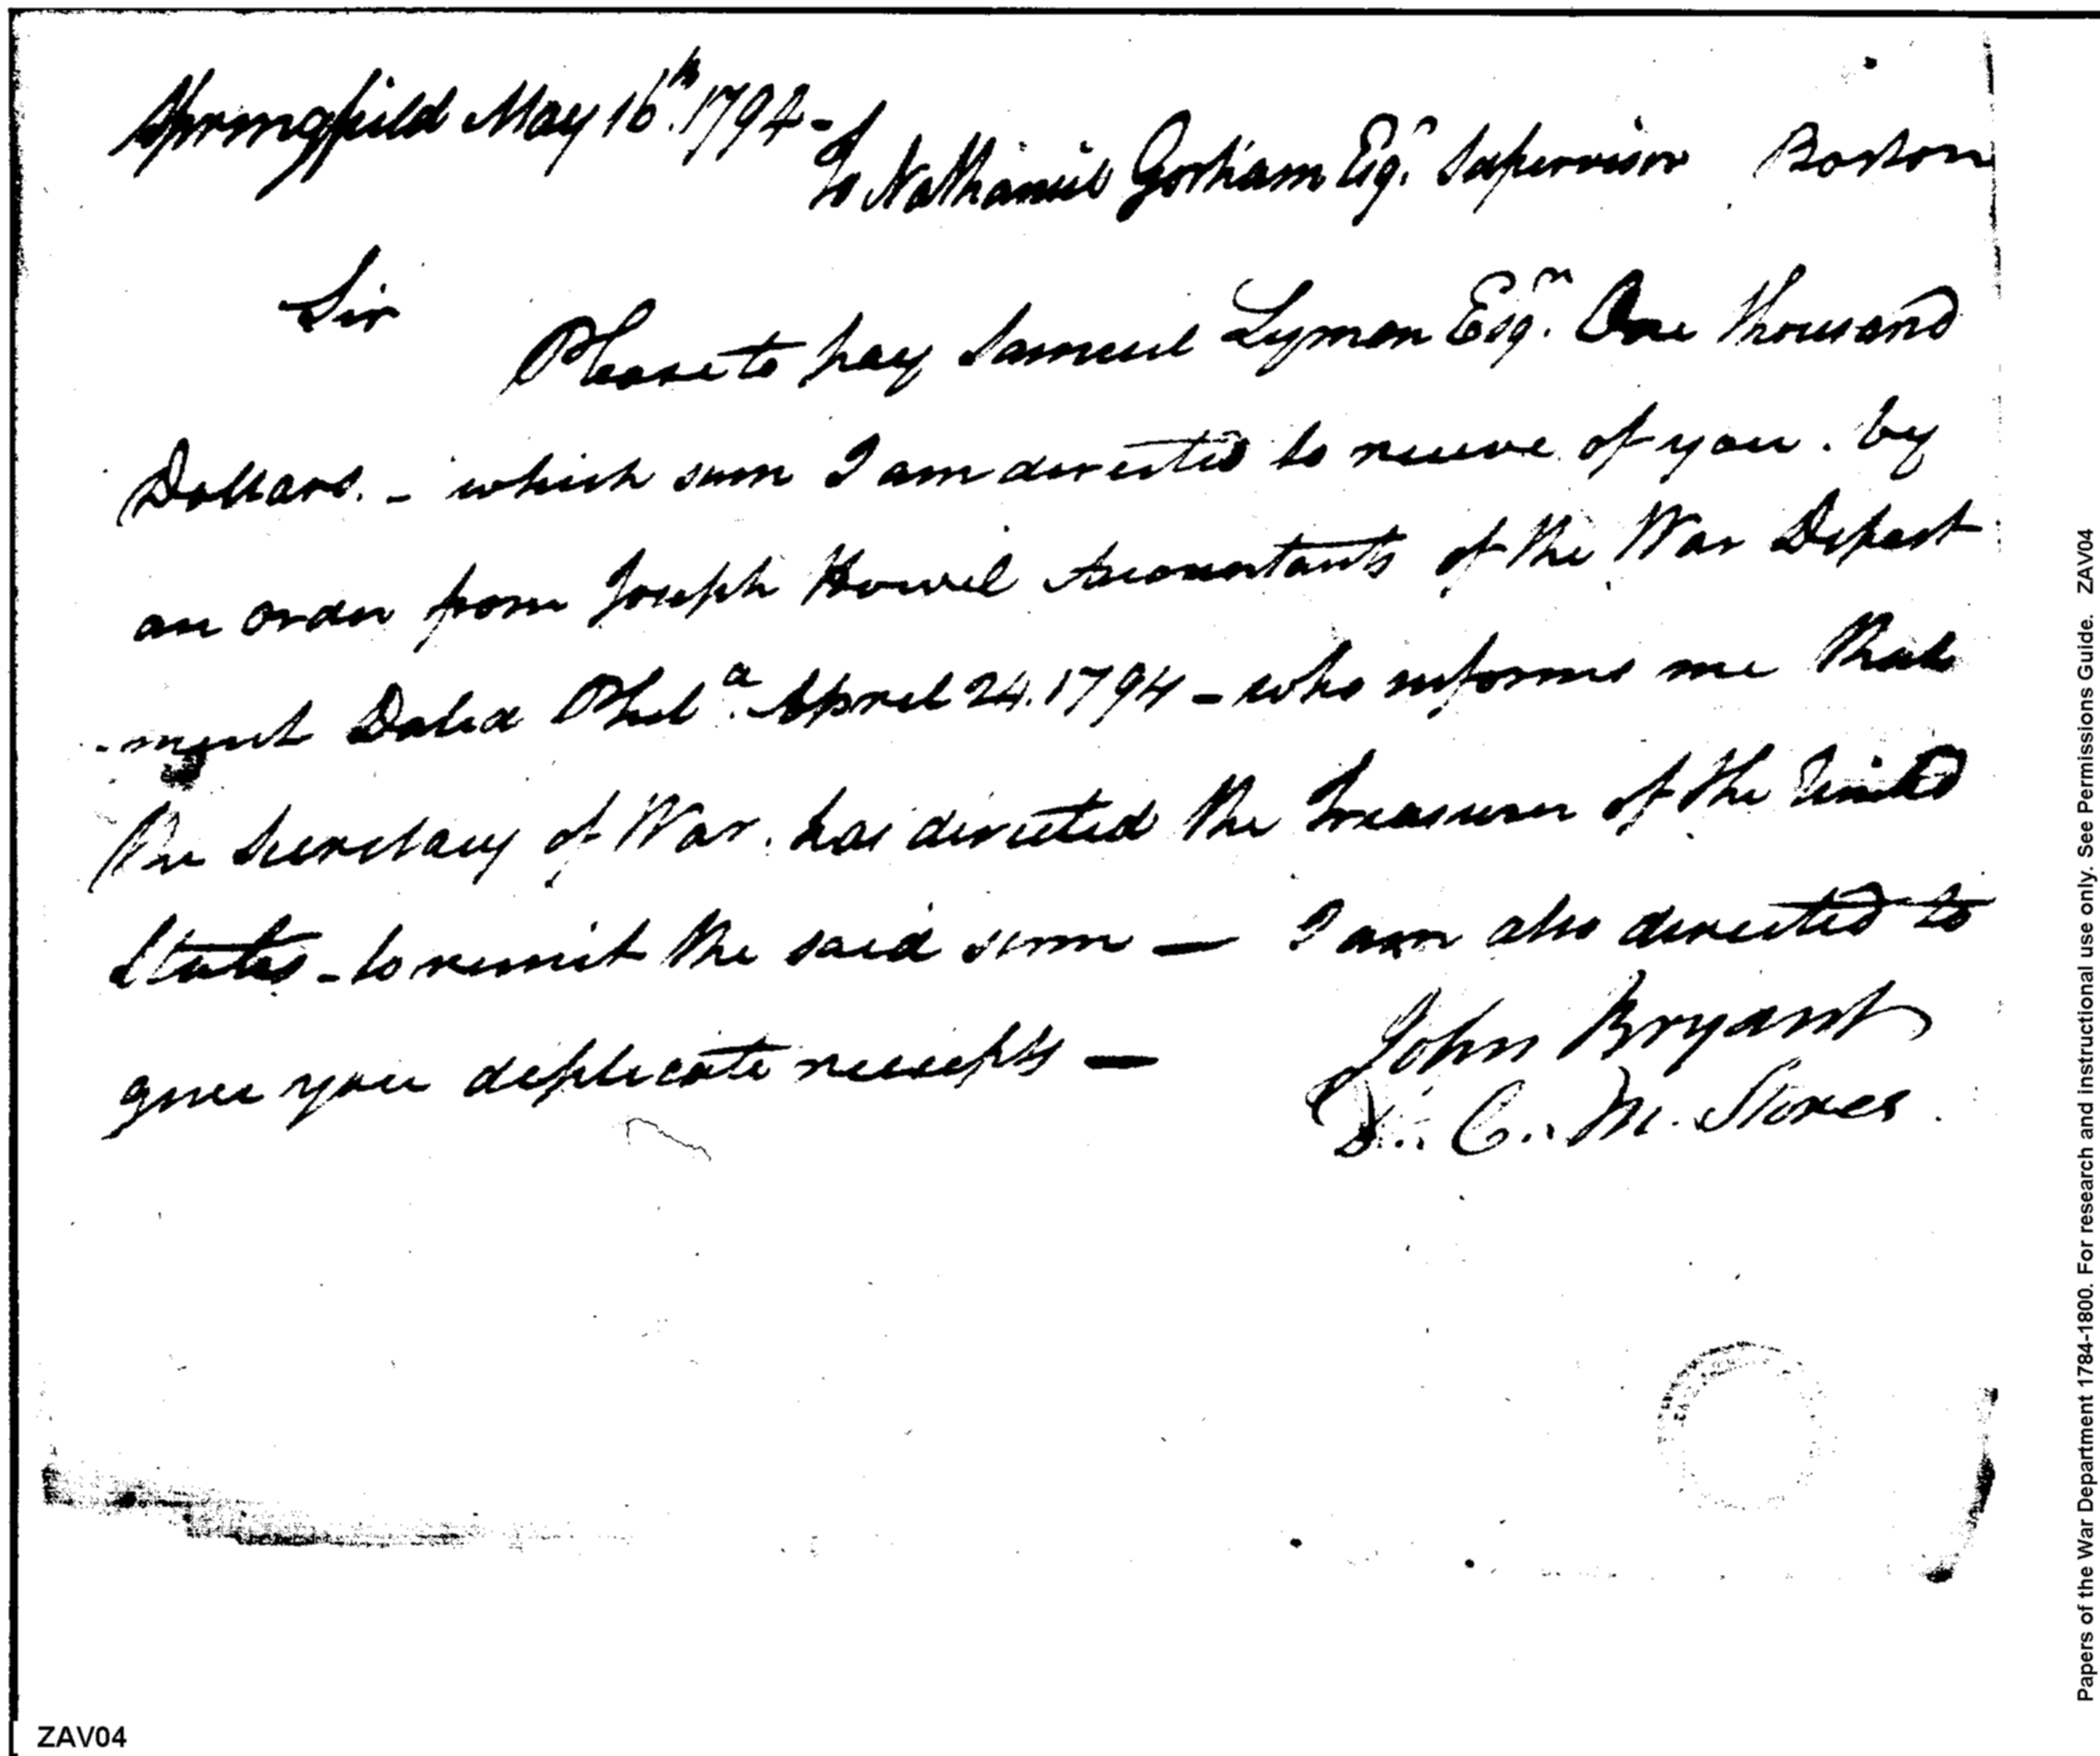 Springfield May 16th. 1794-
To Nathaniel Gorham Esqr. Supervisor Boston
Sir
Please to pay Samuel Lyman Esqr. One Thousand
Dollars. - which sum I am directed to receive of you. by
an order from Joseph Howel Accountants of the War Depart
-ment Dated Phila. April 24. 1794 - who informs me that
the Secretary of War. has directed the Treasurer of the United
States - to remit the said sum — I am also directed to
give you duplicate receipts —
John Bryant
D. C. M. Stores.
ZAV04
Papers of the War Department 1784-1800. For research and instructional use only. See Permissions Guide. ZAV04